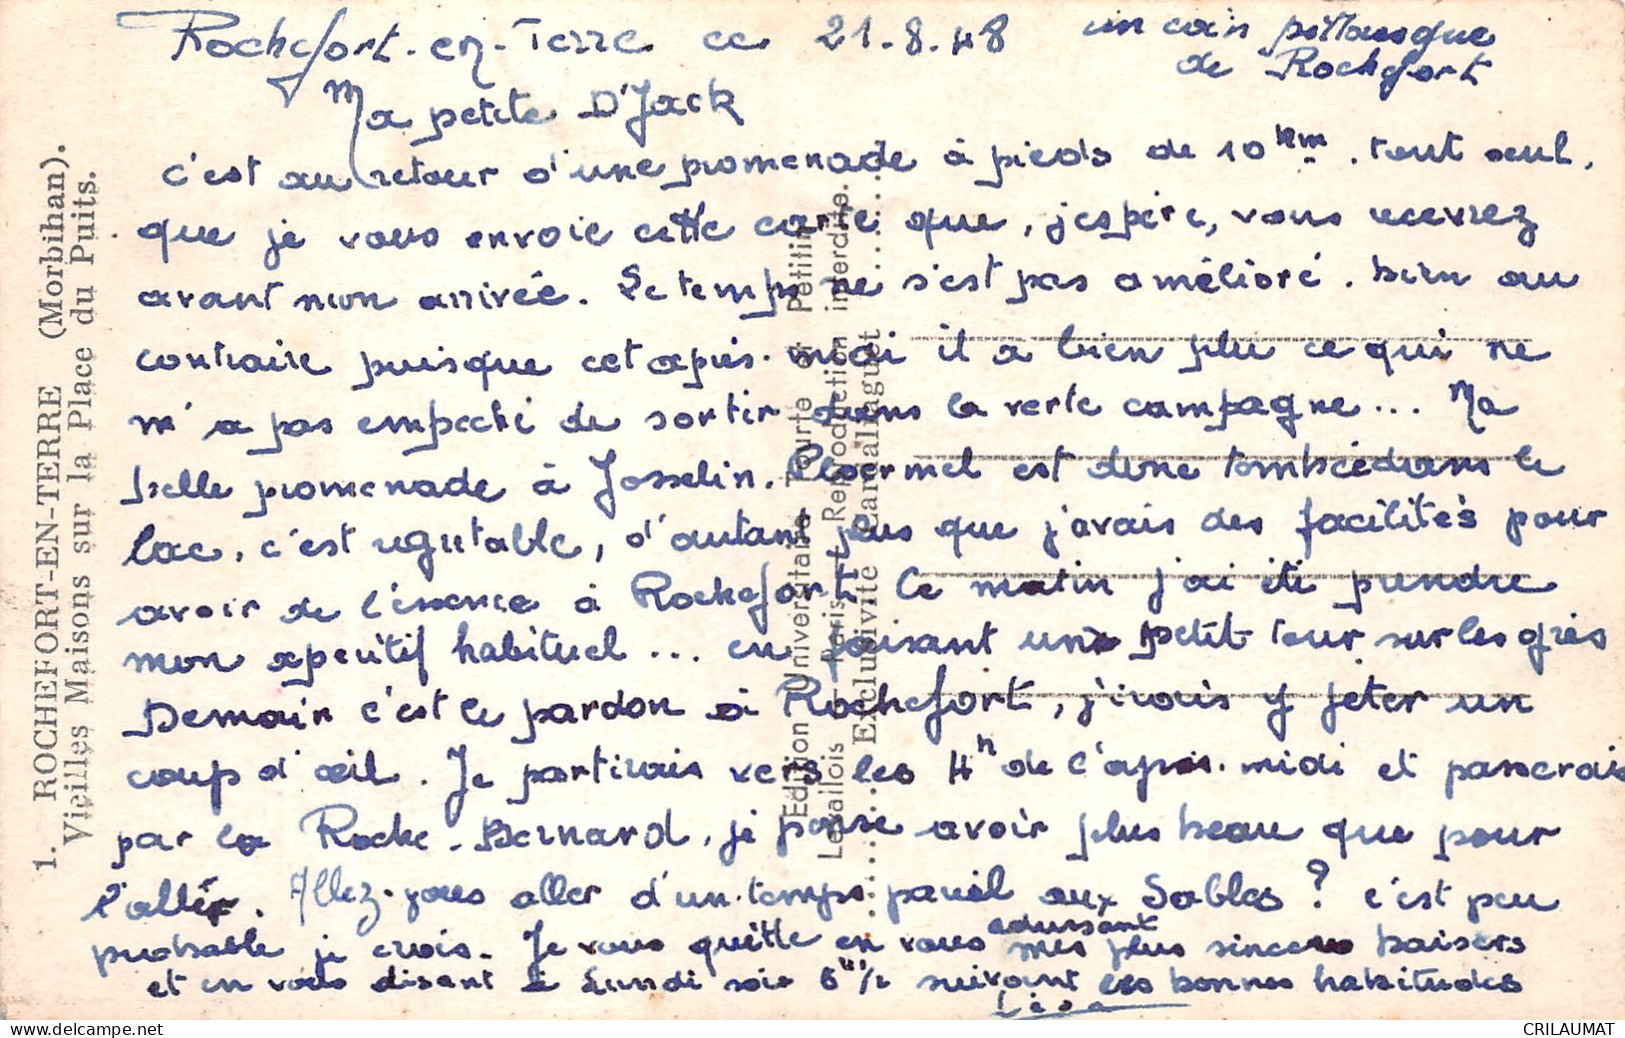 Rochefort-en-Terre ce 21.8.48
un coin pittoresque
de Rochefort
Ma petite D'Jack
c'est au retour d'une promenade à pieds de 10 km. tout seul,
que je vous envoie cette carte que, j'espère, vous recevrez
avant mon arrivée. Le temps ne s'est pas amélioré. bien au
contraire puisque cet après-midi il a bien plu ce qui ne
m'a pas empeché de sortir dans la verte campagne... Ma
belle promenade à Josselin. Ploermel est donc tombée dans le
lac, c'est regretable, d'autant plus que j'avais des facilités pour
avoir de l'essence à Rochefort le matin j'ai été prendre
mon apéritif habituel... en faisant un petit tour sur les grès
Demain c'est le pardon à Rochefort, j'irais y jeter un
coup d'œil. Je partirais vers les 4h de l'après-midi et passerais
par la Roche-Bernard, je pense avoir plus beau que pour
l'aller. Allez-vous aller d'un temps pareil aux Sables ? c'est peu
probable je crois. Je vous quitte en vous adressant mes plus sincères baisers
et en vous disant à Lundi soir 6h 1/2 suivant les bonnes habitudes
1. ROCHEFORT-EN-TERRE (Morbihan).
Vieilles Maisons sur la Place du Puits.
Edition Universitaire Tourte et Petitin
Levallois - Paris - Reproduction interdite.
Exclusivité Garcaliaguet
CRILAUMAT
delcampe.net